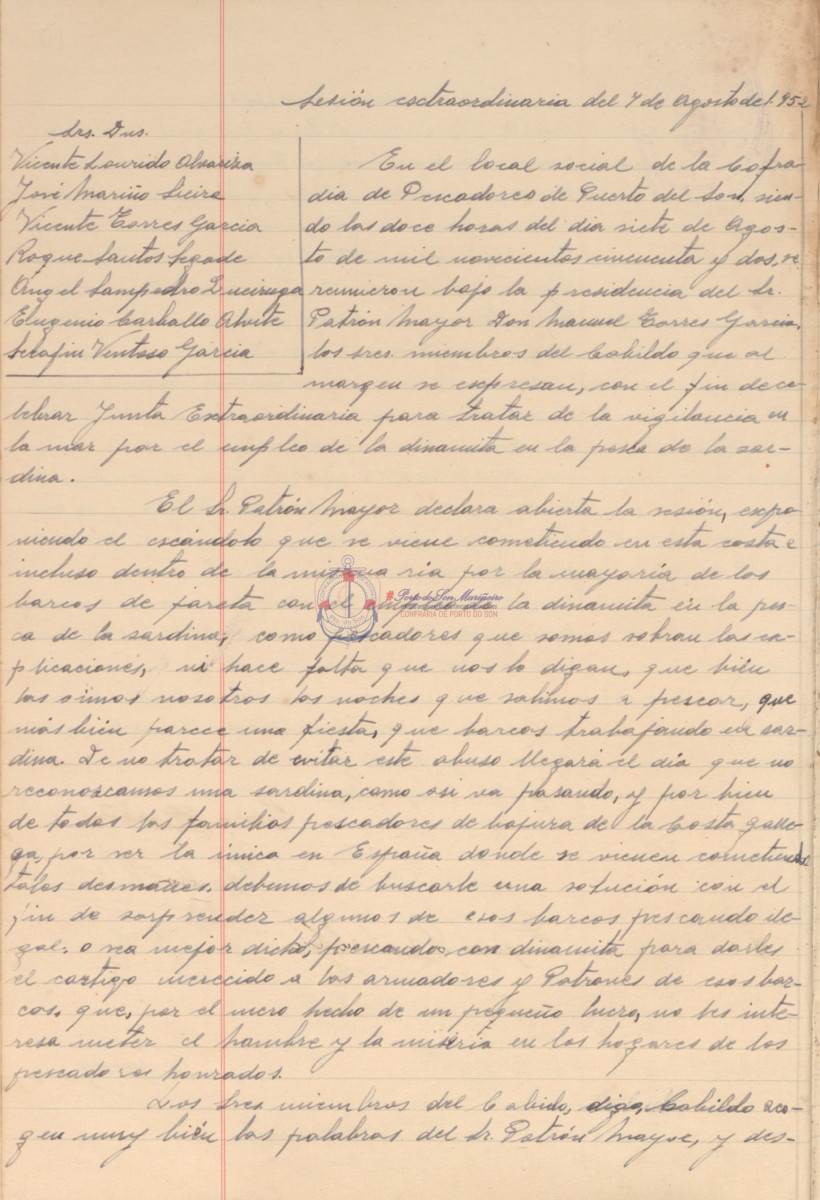 Sesión esctraordinaria del 7 de Agosto de 1.952
Srs. Dns.
Vicente Lourido Alvariza
José Mariño Sieira
Vicente Torres Garcia
Roque Santos Segade
Ángel Sampedro
Eugenio Carballo Alvite
Serafin Ventoso Garcia
En el local social de la Cofra-
dia de Pescadores de Puerto del Son, sien-
do las doce horas del dia siete de Agos-
to de mil novecientos cincuenta y dos, se
reunieron bajo la presidencia del Sr.
Patrón Mayor Don Manuel Torres Garcia,
los sres. miembros del Cabildo que al
margen se expresan, con el fin de ce-
lebrar Junta Esctraordinaria para tratar de la vigilancia en
la mar por el empleo de la dinamita en la pesca de la sar-
dina.
El Sr. Patrón Mayor declara abierta la sesión, expo-
niendo el escándolo que se viene cometiendo en esta costa e
incluso dentro de la misma ría por la mayoría de los
barcos de jareta con el empleo de la dinamita en la pes-
ca de la sardina, como pescadores que somos sobran las ex-
plicaciones, ni hace falta que nos lo digan, que bién
las oimos nosotros las noches que salimos a pescar, que
más bién parece una fiesta, que barcos trabajando en sar-
dina. De no tratar de evitar este abuso llegará el día que no
reconozcamos una sardina, como asi va pasando, y por bien
de todas las familias pescadores de bajura de la Costa galle-
ga, por ser la única en España donde se vienen cometiendo
tales desmanes, debemos de buscarle una solución con el
fin de sorprender algunos de esos barcos pescando ile-
gal. o sea mejor dicho, pescando con dinamita para darles
el castigo merecido a los armadores y Patrones de esos bar-
cos, que, por el mero hecho de un pequeño lucro, no les inte-
resa meter el hambre y la miseria en los hogares de los
pescadores honrados.
Los sres. miembros del Cabido, digo, Cabildo aco-
gen muy bién las palabras del Sr. Patrón Mayor, y des-
Porto do Son Mariñeiro
CONFRARÍA DE PORTO DO SON